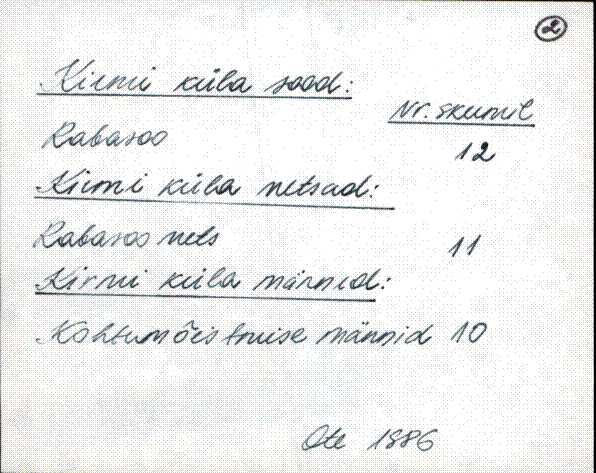 2
Kirmi küla sood:
Nr. skeemil
Rabasoo 12
Kirmi küla metsad:
Rabasoo mets 11
Kirmi küla männid:
männid 10
Ote 1986